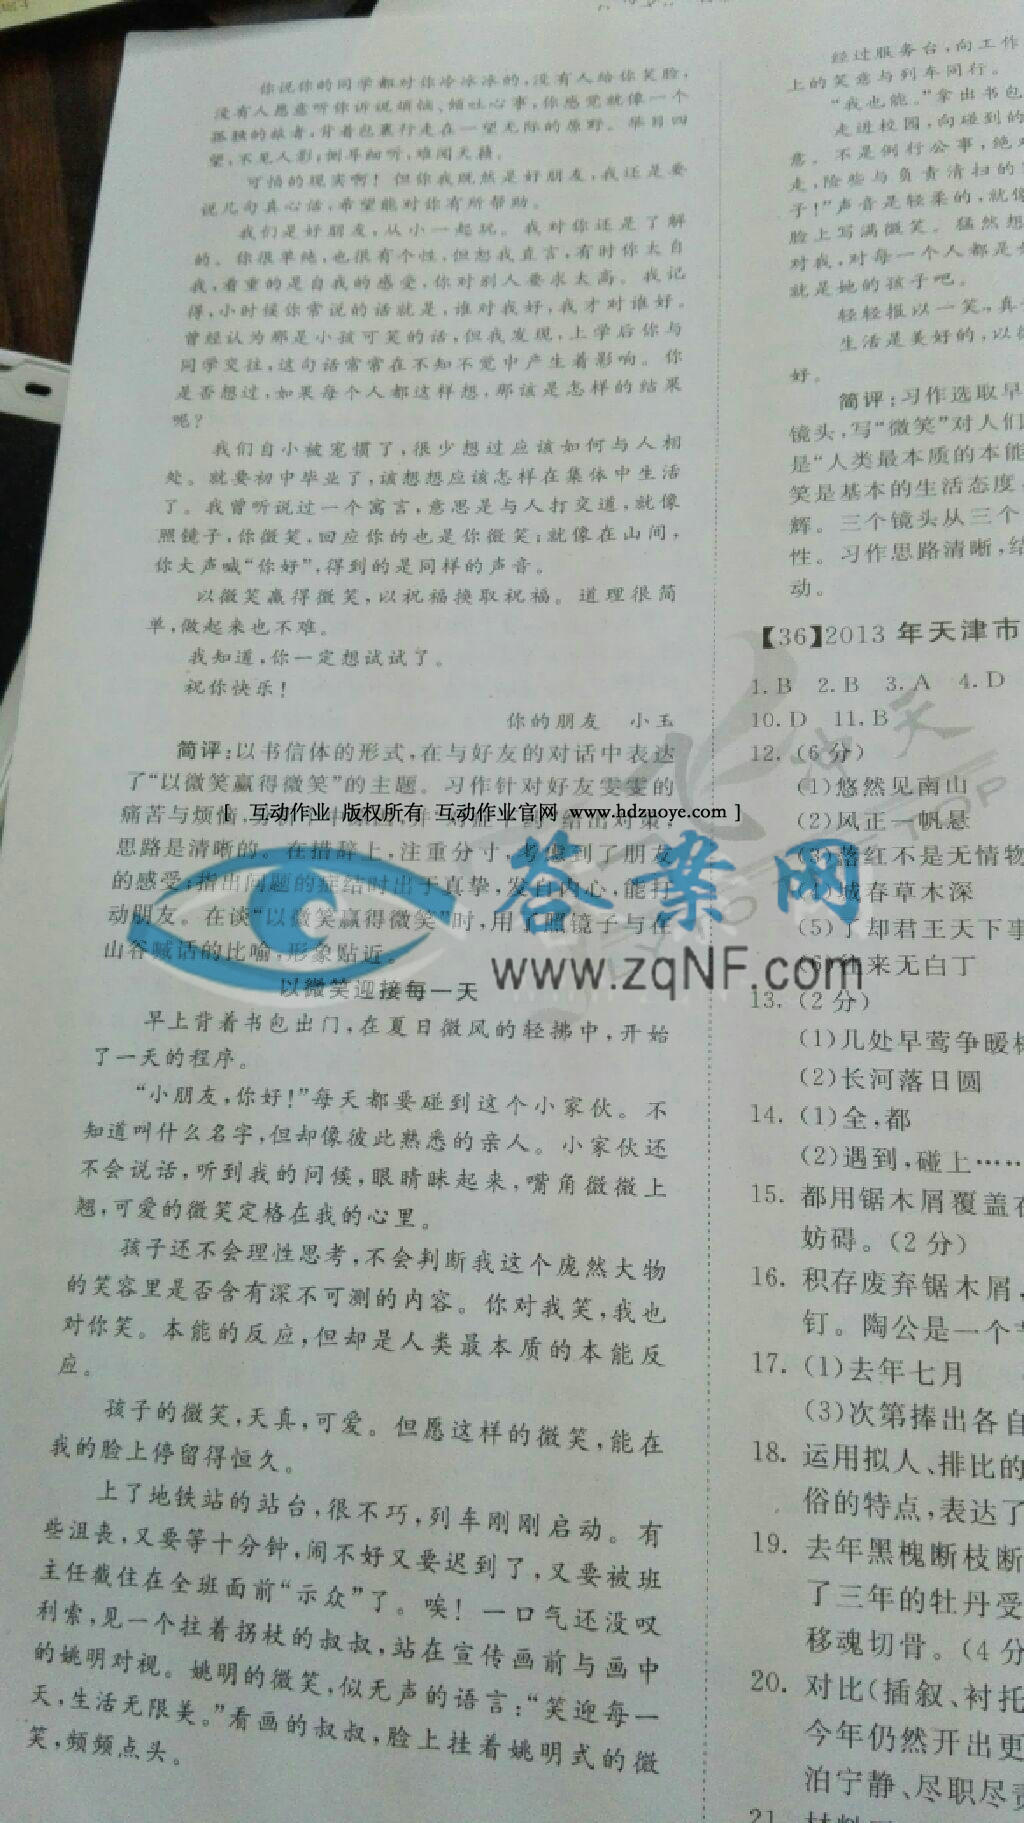 你说你的同学都对你冷冰冰的,没有人给你笑脸,
没有人愿意听你诉说烦恼、倾吐心事,你感觉就像一个
孤独的旅者,背着包裹行走在一望无际的原野。举目四
望,不见人影;侧耳细听,难闻天籁。
可怕的现实啊!但你我既然是好朋友,我还是要
说几句真心话,希望能对你有所帮助。
我们是好朋友,从小一起玩。我对你还是了解
的。你很单纯,也很有个性,但恕我直言,有时你太自
我,看重的是自我的感受,你对别人要求太高。我记
得,小时候你常说的话就是,谁对我好,我才对谁好。
曾经认为那是小孩可笑的话,但我发现,上学后你与
同学交往,这句话常常在不知不觉中产生着影响。你
是否想过,如果每个人都这样想,那该是怎样的结果
呢?
我们自小被宠惯了,很少想过应该如何与人相
处。就要初中毕业了,该想想应该怎样在集体中生活
了。我曾听说过一个寓言,意思是与人打交道,就像
照镜子,你微笑,回应你的也是你微笑;就像在山间,
你大声喊“你好”,得到的是同样的声音。
以微笑赢得微笑,以祝福换取祝福。道理很简
单,做起来也不难。
我知道,你一定想试试了。
祝你快乐!
你的朋友 小玉
简评:以书信体的形式,在与好友的对话中表达
了“以微笑赢得微笑”的主题。习作针对好友雯雯的
痛苦与烦恼,
[ 互动作业 版权所有 互动作业官网 www.hdzuoye.com ]
给出对策,
思路是清晰的。在措辞上,注重分寸,考虑到了朋友
的感受;指出问题的症结时出于真挚,发自内心,能打
动朋友。在谈“以微笑赢得微笑”时,用了照镜子与在
山谷喊话的比喻,形象贴近。
以微笑迎接每一天
早上背着书包出门,在夏日微风的轻拂中,开始
了一天的程序。
“小朋友,你好!”每天都要碰到这个小家伙。不
知道叫什么名字,但却像彼此熟悉的亲人。小家伙还
不会说话,听到我的问候,眼睛眯起来,嘴角微微上
翘,可爱的微笑定格在我的心里。
孩子还不会理性思考,不会判断我这个庞然大物
的笑容里是否含有深不可测的内容。你对我笑,我也
对你笑。本能的反应,但却是人类最本质的本能反
应。
孩子的微笑,天真,可爱。但愿这样的微笑,能在
我的脸上停留得恒久。
上了地铁站的站台,很不巧,列车刚刚启动。有
些沮丧,又要等十分钟,闹不好又要迟到了,又要被班
主任截住在全班面前“示众”了。唉!一口气还没叹
利索,见一个拄着拐杖的叔叔,站在宣传画前与画中
的姚明对视。姚明的微笑,似无声的语言:“笑迎每一
天,生活无限美。”看画的叔叔,脸上挂着姚明式的微
笑,频频点头。
答案网
www.zqNF.com
经过服务台,向工作
上的笑意与列车同行。
“我也能。”拿出书包
走进校园,向碰到的
意。不是例行公事,绝对
走,险些与负责清扫的
子!”声音是轻柔的,就像
脸上写满微笑。猛然想
对我,对每一个人都是
就是她的孩子吧。
轻轻报以一笑,真
生活是美好的,以微
好。
简评:习作选取早
镜头,写“微笑”对人们
是“人类最本质的本能
笑是基本的生活态度
辉。三个镜头从三个
性。习作思路清晰,结
动。
【36】2013年天津市
1. B 2. B 3. A 4. D
10. D 11. B
12. (6分)
(1)悠然见南山
(2)风正一帆悬
(3)落红不是无情物
(4)城春草木深
(5)了却君王天下事
(6)往来无白丁
13. (2分)
(1)几处早莺争暖树
(2)长河落日圆
14. (1)全,都
(2)遇到,碰上……
15. 都用锯木屑覆盖在
妨碍。(2分)
16. 积存废弃锯木屑,
钉。陶公是一个
17. (1)去年七月
(3)次第捧出各自
18. 运用拟人、排比的
俗的特点,表达了
19. 去年黑槐断枝断
了三年的牡丹受
移魂切骨。(4分
20. 对比(插叙、衬托
今年仍然开出更
泊宁静、尽职尽责
21.